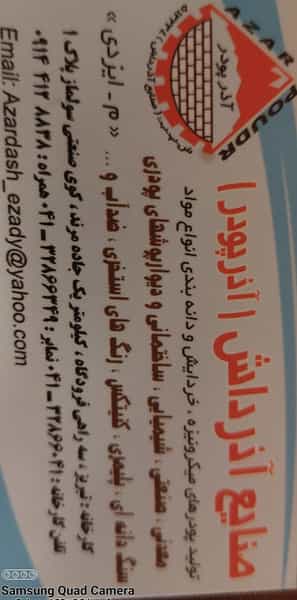 AZAR POUDR
آذر پودر
صنایع آذرداش (آذرپودر)
تولید پودرهای میکرونیزه ، خردایش و دانه بندی انواع مواد
معدنی ، صنعتی ، شیمیایی ، ساختمانی و دیوارپوشهای پودری
سنگ دانه ای ، پلیمری ، کنیتکس ، رنگ های استخری ، ضدآب و ... « م - ایزدی »
کارخانه : تبریز ، سه راهی فرودگاه ، کیلومتر یک جاده مرند ، کوی صنعتی سولماز پلاک ۱
تلفن کارخانه : ۳۲۸۶۶۰۴۱ - ۰۴۱ نمابر : ۳۲۸۶۶۳۴۹ - ۰۴۱ همراه : ۰۹۱۴ ۴۱۲ ۸۸۳۸
Email: Azardash_ezady@yahoo.com
Samsung Quad Camera